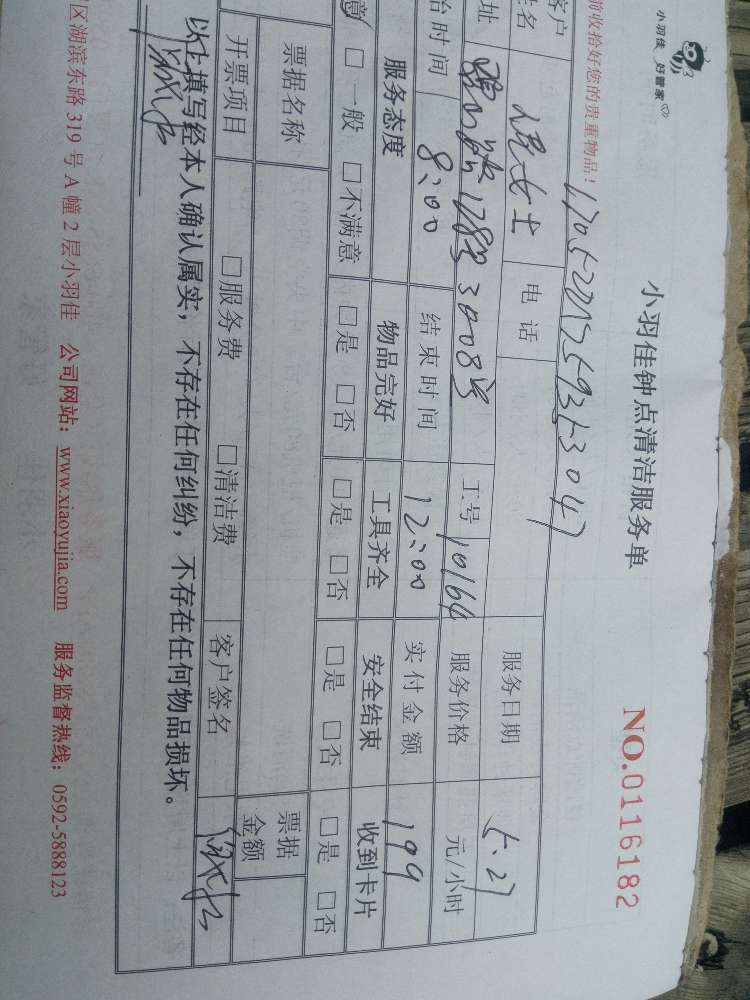 小羽佳 好管家
小羽佳钟点清洁服务单
NO.0116182
前收拾好您的贵重物品！
客户
姓名
女士
电话
服务日期
5.27
址
128号3008号
工号
10164
服务价格
元/小时
始时间
8:00
结束时间
12:00
实付金额
199
服务态度
物品完好
工具齐全
安全结束
收到卡片
意 □一般 □不满意
□是 □否
□是 □否
□是 □否
□是 □否
票据名称
票据
金额
开票项目
□服务费 □清洁费
客户签名
以上填写经本人确认属实，不存在任何纠纷，不存在任何物品损坏。
区湖滨东路 319 号 A 幢 2 层小羽佳 公司网站：www.xiaoyujia.com 服务监督热线：0592-5888123